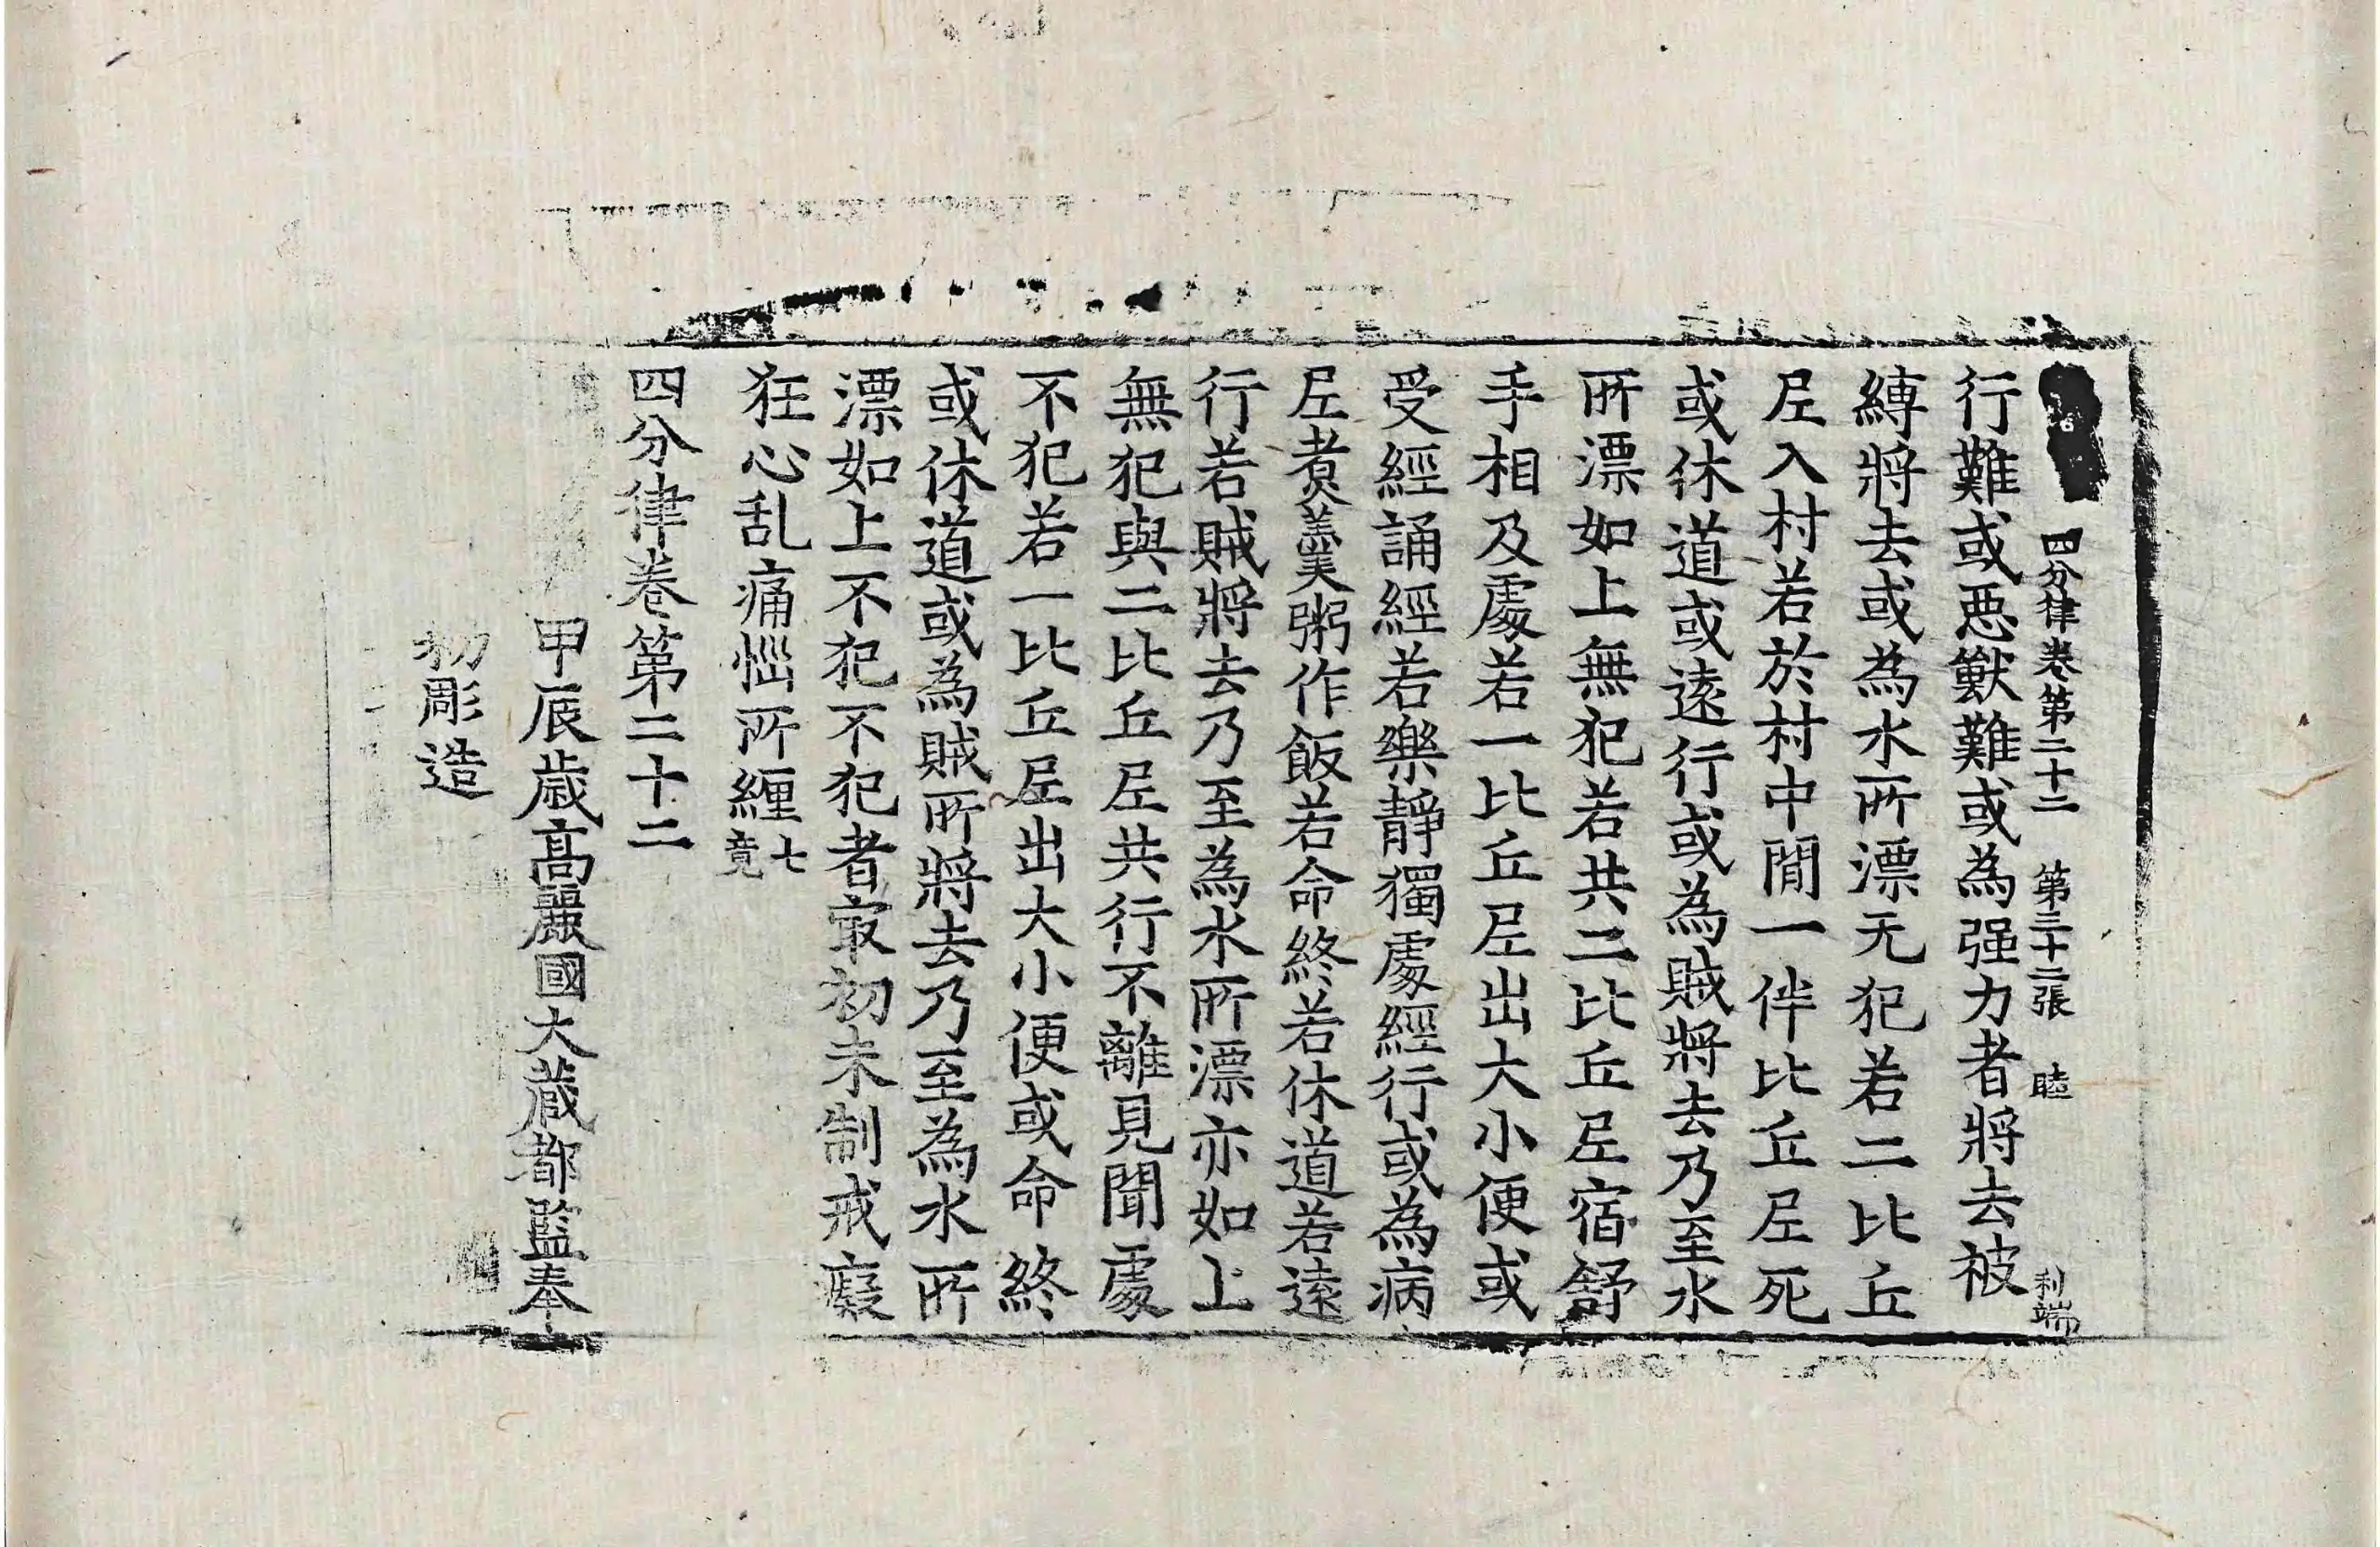 四分律卷第二十二 第三十二張 睦 利端
行難或悪獸難或為强力者將去被
縛將去或為水所漂无犯若二比丘
尼入村若於村中閒一伴比丘尼死
或休道或遠行或為賊將去乃至水
所漂如上無犯若共二比丘尼宿舒
手相及處若一比丘尼出大小便或
受經誦經若樂靜獨處經行或為病
尼煮羹粥作飯若命終若休道若遠
行若賊將去乃至為水所漂亦如上
無犯與二比丘尼共行不離見聞處
不犯若一比丘尼出大小便或命終
或休道或為賊所將去乃至為水所
漂如上不犯不犯者㝡初未制戒癡
狂心乱痛惱所纏七竟
四分律卷第二十二
甲辰歲高麗國大藏都監奉
勅彫造